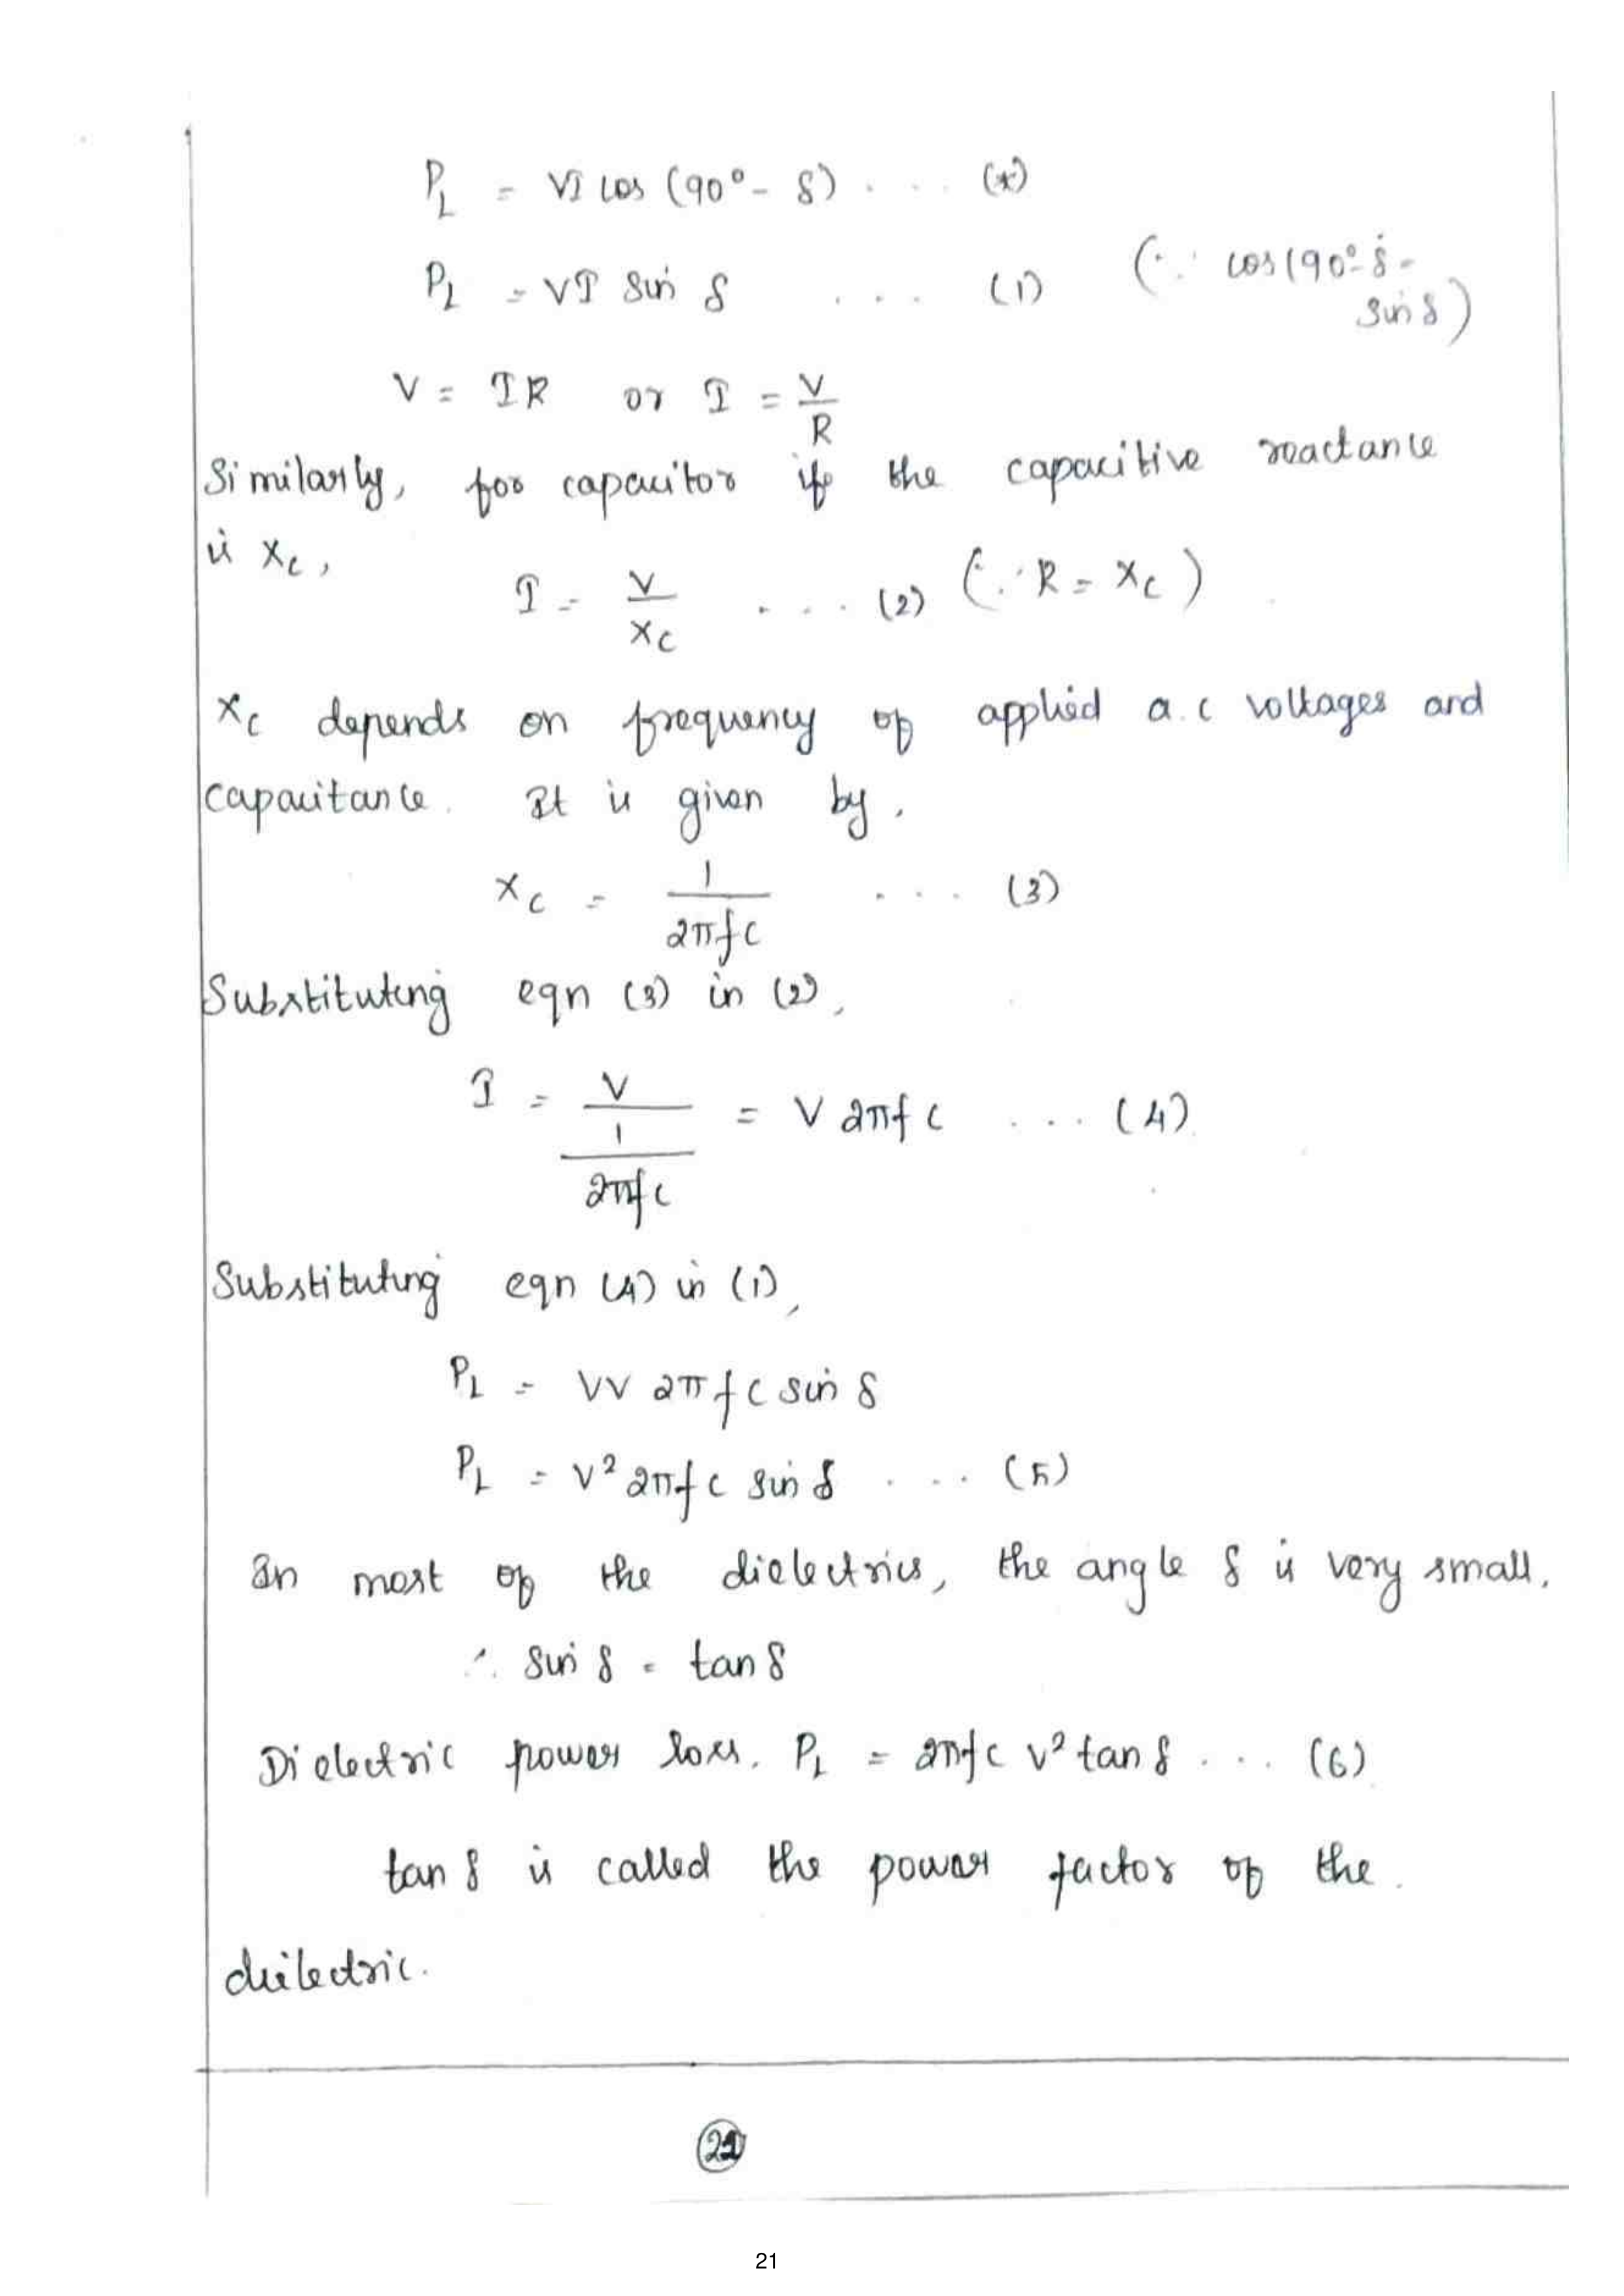 P_L = VI cos (90° - δ) . . . (*)
P_L = VI sin δ . . . (1) (∵ cos(90°-δ =
sin δ)
V = IR or I = V/R
Similarly, for capacitor if the capacitive reactance
is X_C,
I = V/X_C . . . . (2) (∵ R = X_C)
X_C depends on frequency of applied a.c voltages and
capacitance. It is given by,
X_C = 1/2πfC . . . . (3)
Substituting eqn (3) in (2),
I = V/(1/2πfC) = V 2πfC . . . (4)
Substituting eqn (4) in (1),
P_L = VV 2πfC sin δ
P_L = V² 2πfC sin δ . . . . (5)
In most of the dielectrics, the angle δ is very small.
∴ sin δ = tan δ
Dielectric power loss. P_L = 2πfC V² tan δ . . . (6)
tan δ is called the power factor of the
dielectric.
21